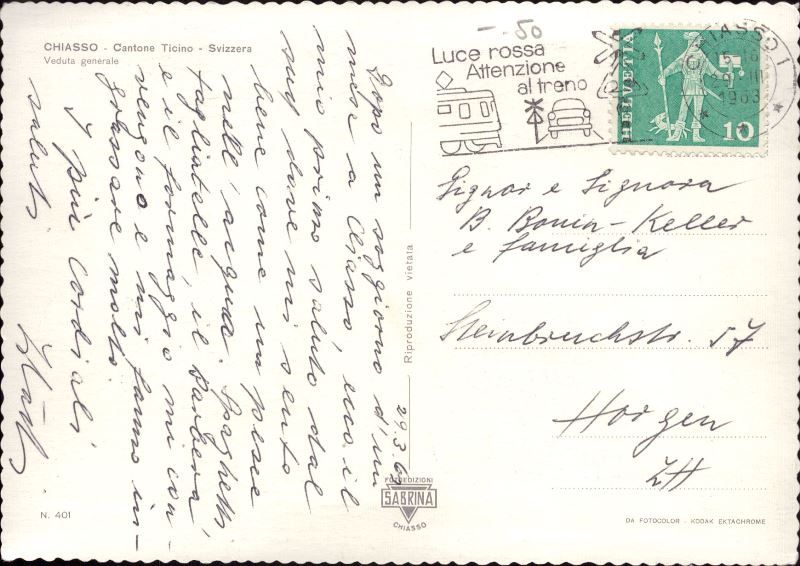 CHIASSO - Cantone Ticino - Svizzera
Veduta generale
29.3.63
Dopo un soggiorno d'un
mese a Chiasso, ecco il
mio primo saluto dal
sud dove mi sento
bene come un pesce
nell'acqua. Spaghetti,
tagliatelle, il barbera
e il formaggio mi con-
vengono e mi fanno in-
grassare molto.
I più cordiali
saluti.
N. 401
Riproduzione vietata
FOTOEDIZIONI
SABRINA
CHIASSO
-.50
Luce rossa
Attenzione
al treno
CHIASSO 1
1963
HELVETIA
10
Signor e Signora
B. Bonin-Keller
e famiglia
Steinbruchstr. 57
Horgen
ZH
DA FOTOCOLOR - KODAK EKTACHROME